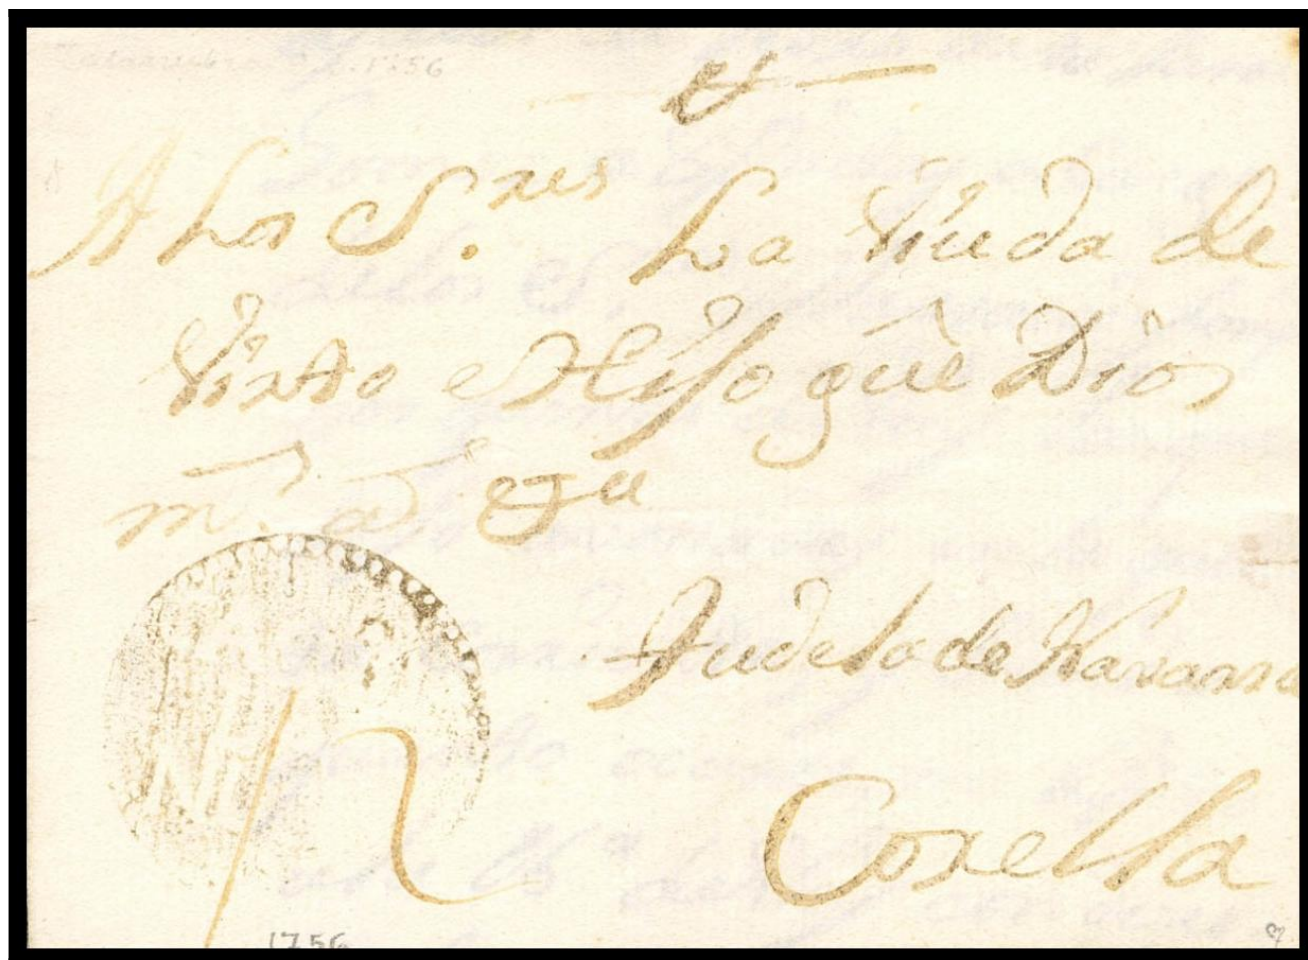 A Los S.res La Viuda de
Virto e Hijo que Dios
m.s a.s
Tudela de Navarra
Corella
1756